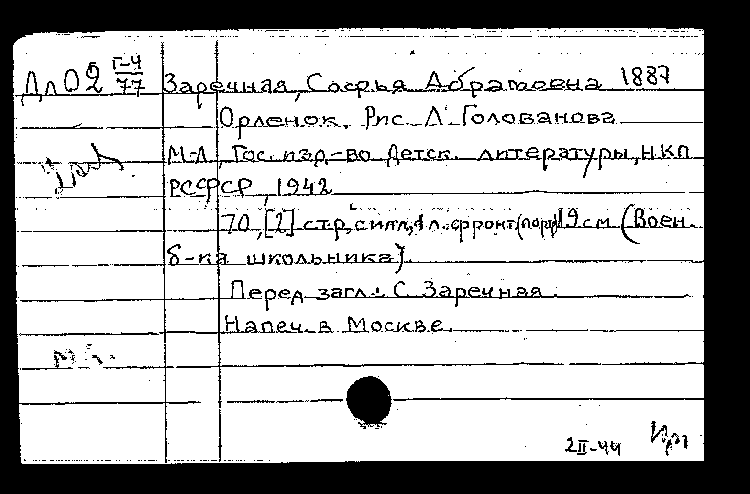 Дл 02 Г-4/77 Заречная, Софья Абрамовна 1887
Орленок. Рис. Л. Голованова
М-Л, Гос. изд-во Детск. литературы, НКП
РСФСР, 1942
70, [2] стр, с илл, 1 л. фронт (порт) 19 см (Воен.
б-ка школьника).
Перед загл.: С. Заречная.
Напеч. в Москве.
2II-44